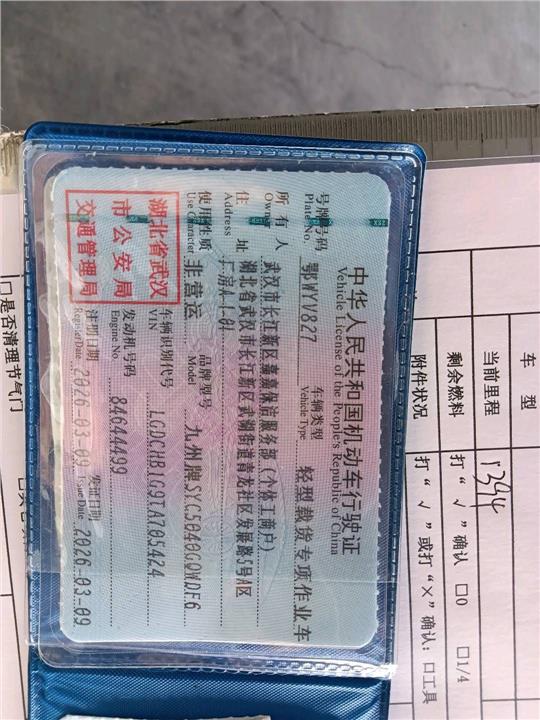 中华人民共和国机动车行驶证
Vehicle License of the People's Republic of China
号牌号码 鄂WYV827 车辆类型 轻型载货专项作业车
Plate No. Vehicle Type
所有人 武汉市长江新区
保洁服务部(个体工商户)
Owner
住址 湖北省武汉市长江新区武湖街道青龙社区发展路5号A区
厂房A-1-01
Address
使用性质 非营运 品牌型号 九州牌SYC5040GQWDF6
Use Character Model
湖北省武汉
市公安局
交通管理局
车辆识别代号 LGDCHB1G9TA705424
VIN
发动机号码 84644499
Engine No.
注册日期 2026-03-09 发证日期 2026-03-09
Register Date Issue Date
车型
当前里程 1394
剩余燃料 打“√”确认 □0 □1/4
附件状况 打“√”或打“×”确认:□工具
□是否清理节气门